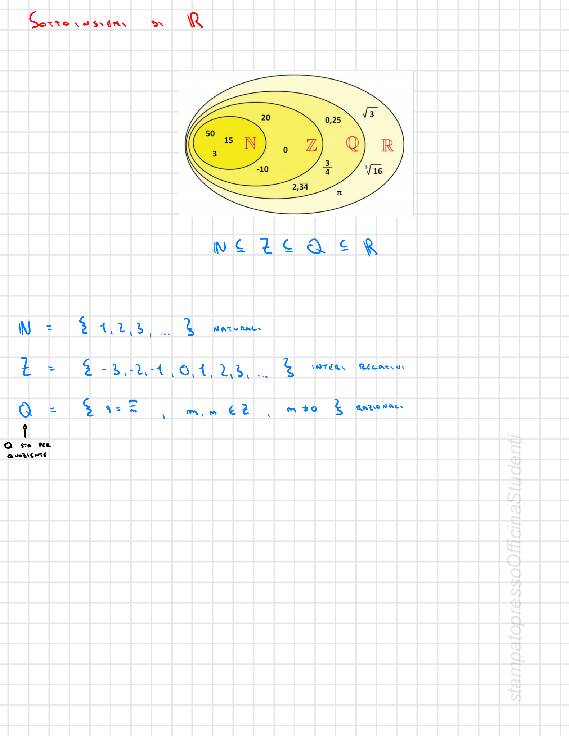 SOTTOINSIEMI DI ℝ
20
0,25
√3
50
15
ℕ
ℤ
ℚ
ℝ
3
0
-10
3/4
√16
2,34
π
ℕ ⊆ ℤ ⊆ ℚ ⊆ ℝ
ℕ = { 1, 2, 3, ... } NATURALI
ℤ = { -3, -2, -1, 0, 1, 2, 3, ... } INTERI RELATIVI
ℚ = { , m, n ∈ ℤ , n ≠ 0 } RAZIONALI
Q STA PER
QUOZIENTE
stampatopressoOfficinaStudenti